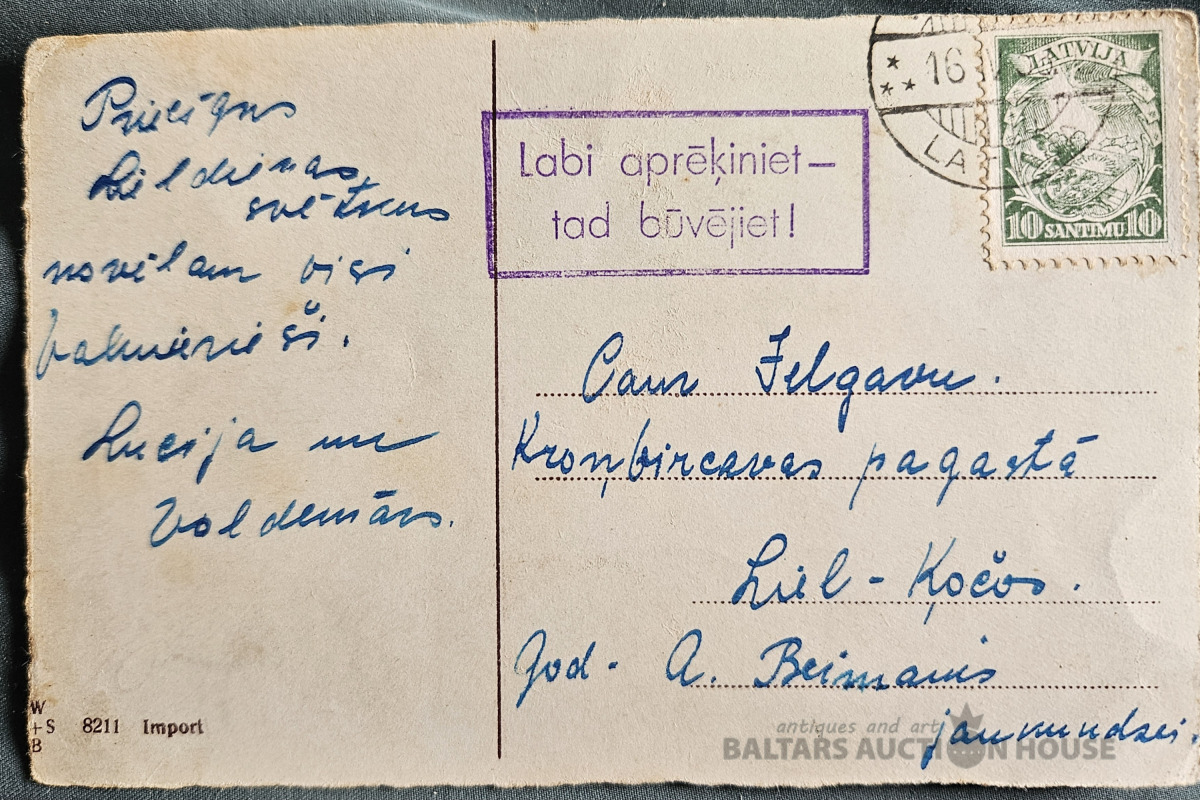 Priecīgus
Lieldienas
svētkus
novēlam visi
valmierieši.
Lucija un
Voldemārs.
W
+S 8211 Import
B
Labi aprēķiniet—
tad būvējiet!
16
LA
LATVIJA
10 SANTIMU 10
Caur Jelgavu.
Kroņvircavas pagastā
Liel-Ķočos.
God. A. Beimanis
jaunkundzei.
antiques and art
BALTARS AUCTION HOUSE